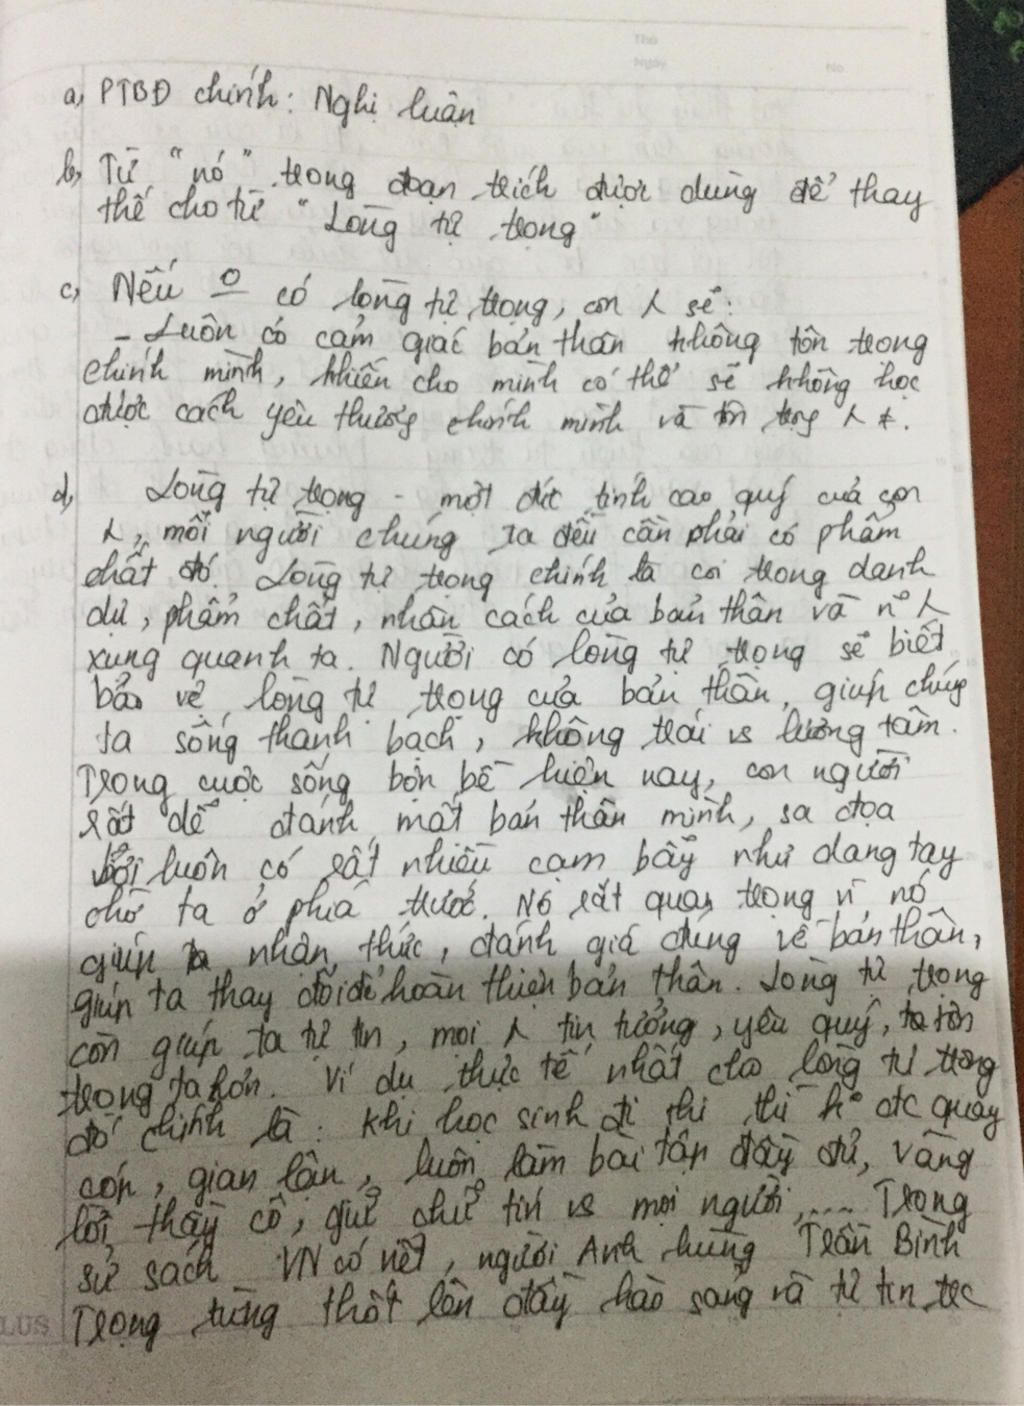 Thứ
Ngày
No
a, PTBĐ chính: Nghị luận
b, Từ "nó" trong đoạn trích được dùng để thay
thế cho từ "Lòng tự trọng"
c, Nếu 0 có lòng tự trọng, con λ sẽ:
- Luôn có cảm giác bản thân không tôn trọng
chính mình, khiến cho mình có thể sẽ không học
được cách yêu thương chính mình và tôn trọng λ ≠.
d, Lòng tự trọng - một đức tính cao quý của con
λ, mỗi người chúng ta đều cần phải có phẩm
chất đó. Lòng tự trọng chính là coi trọng danh
dự, phẩm chất, nhân cách của bản thân và n° λ
xung quanh ta. Người có lòng tự trọng sẽ biết
bảo vệ lòng tự trọng của bản thân, giúp chúng
ta sống thanh bạch, không trái vs lương tâm.
Trong cuộc sống bộn bề hiện nay, con người
rất dễ đánh mất bản thân mình, sa đọa
bởi luôn có rất nhiều cạm bẫy như dang tay
chờ ta ở phía trước. Nó rất quan trọng vì nó
giúp ta nhận thức, đánh giá đúng về bản thân,
giúp ta thay đổi để hoàn thiện bản thân. Lòng tự trọng
còn giúp ta tự tin, mọi λ tin tưởng, yêu quý, tôn
trọng ta hơn. Ví dụ thực tế nhất cho lòng tự trọng
đó chính là: Khi học sinh đi thi thì k° đc quay
cóp, gian lận, luôn làm bài tập đầy đủ, vâng
lời thầy cô, giữ chữ tín vs mọi người,.... Trong
sử sách VN có viết, người Anh hùng Trần Bình
Trọng từng thốt lên đầy hào sảng và tự tin trc
LUS